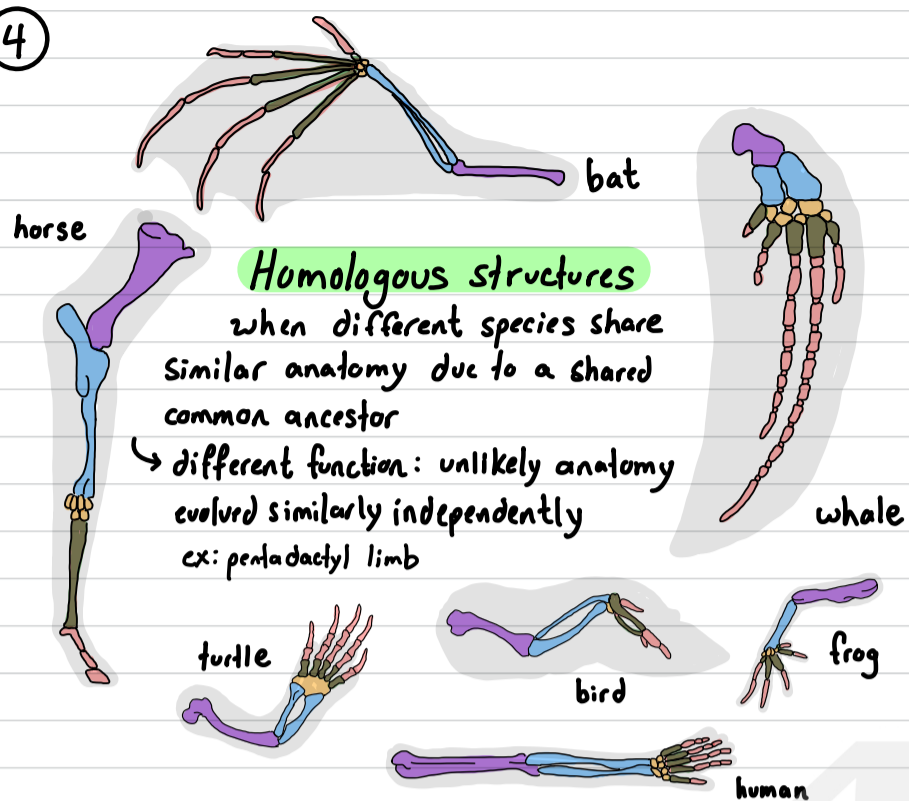 4
bat
horse
Homologous structures
when different species share
similar anatomy due to a shared
common ancestor
↳ different function: unlikely anatomy
evolved similarly independently
ex: pentadactyl limb
whale
turtle
bird
frog
human